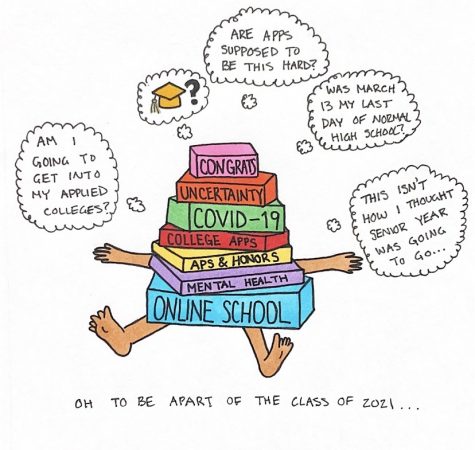 ARE APPS
SUPPOSED TO
BE THIS HARD?
?
WAS MARCH
13 MY LAST
DAY OF NORMAL
HIGH SCHOOL?
AM I
GOING TO
GET INTO
MY APPLIED
COLLEGES?
THIS ISN'T
HOW I THOUGHT
SENIOR YEAR
WAS GOING
TO GO...
CONGRATS
UNCERTAINTY
COVID-19
COLLEGE APPS
APS & HONORS
MENTAL HEALTH
ONLINE SCHOOL
OH TO BE APART OF THE CLASS OF 2021...